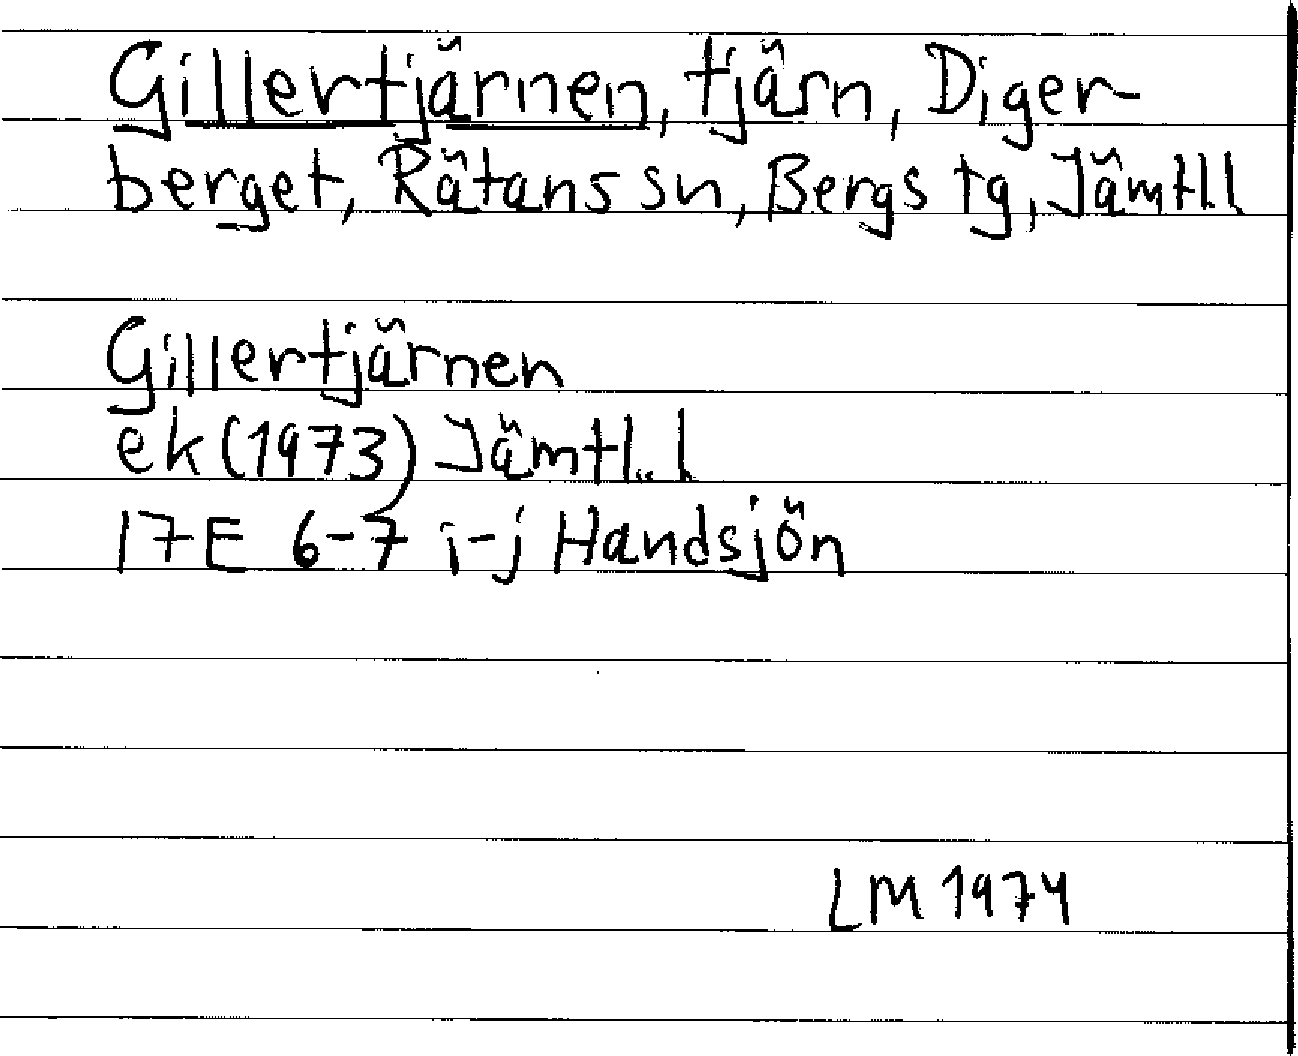 Gillertjärnen, tjärn, Diger
berget, Rätans sn, Bergs tg, Jämtl.l
Gillertjärnen
ek (1973) Jämtl..l
17E 6-7 i-j Handsjön
LM 1974